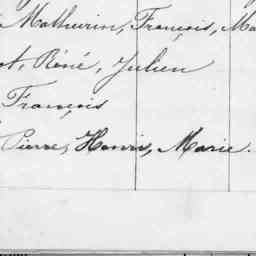 Mathurin, François, Ma
ot, Réné, Julien
François
Pierre, Henri, Marie.